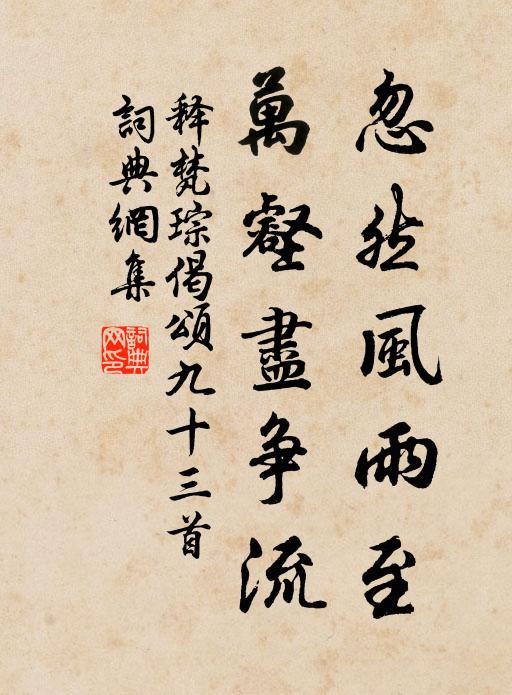 忽然風雨至
萬壑盡争流
释梵琮偈頌九十三首
詞典網集
詞典网印